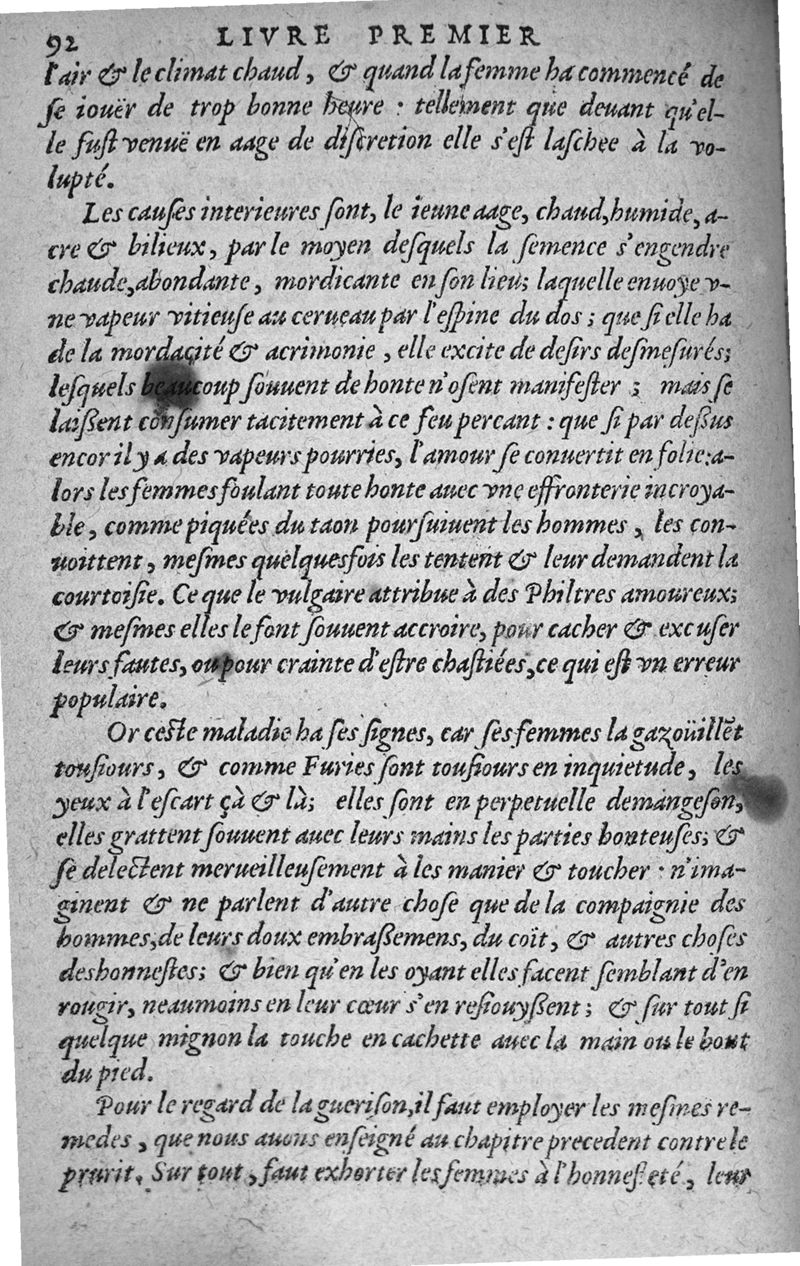 92 LIVRE PREMIER
l'air & le climat chaud, & quand la femme ha commencé de
ſe iouër de trop bonne heure : tellement que deuant qu'el-
le fuſt venuë en aage de diſcretion elle s'eſt laſchee à la vo-
lupté.
Les cauſes interieures ſont, le ieune aage, chaud, humide, a-
cre & bilieux, par le moyen deſquels la ſemence s'engendre
chaude, abondante, mordicante en ſon lieu; laquelle enuoye v-
ne vapeur vitieuſe au cerueau par l'eſpine du dos ; que ſi elle ha
de la mordacité & acrimonie, elle excite de deſirs deſmeſurés;
leſquels beaucoup ſouuent de honte n'oſent manifeſter ; mais ſe
laiſſent conſumer tacitement à ce feu percant : que ſi par deſſus
encor il y a des vapeurs pourries, l'amour ſe conuertit en folie: a-
lors les femmes foulant toute honte auec vne effronterie incroya-
ble, comme piquées du taon pourſuiuent les hommes, les con-
uoittent, meſmes quelquesfois les tentent & leur demandent la
courtoiſie. Ce que le vulgaire attribue à des Philtres amoureux;
& meſmes elles le font ſouuent accroire, pour cacher & excuſer
leurs fautes, ou pour crainte d'eſtre chaſtiées, ce qui eſt vn erreur
populaire.
Or ceſte maladie ha ſes ſignes, car ſes femmes la gazoüillẽt
touſiours, & comme Furies ſont touſiours en inquietude, les
yeux à l'eſcart çà & là; elles ſont en perpetuelle demangeſon,
elles grattent ſouuent auec leurs mains les parties honteuſes; &
ſe delectent merueilleuſement à les manier & toucher : n'ima-
ginent & ne parlent d'autre choſe que de la compaignie des
hommes, de leurs doux embraſſemens, du coït, & autres choſes
deshonneſtes; & bien qu'en les oyant elles facent ſemblant d'en
rougir, neaumoins en leur cœur s'en reſiouyſſent ; & ſur tout ſi
quelque mignon la touche en cachette auec la main ou le bout
du pied.
Pour le regard de la gueriſon, il faut employer les meſmes re-
medes, que nous auons enſeigné au chapitre precedent contre le
prurit. Sur tout, faut exhorter les femmes à l'honneſteté, leur